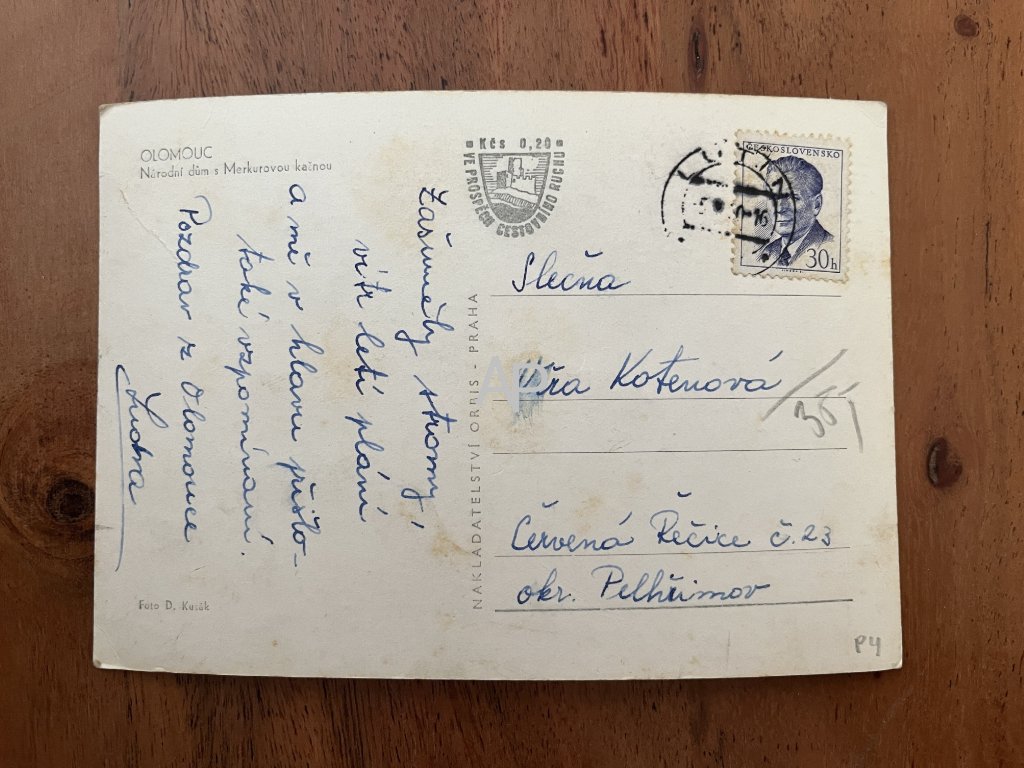 OLOMOUC
Národní dům s Merkurovou kašnou
Zašuměly stromy,
vítr letí plání
a mě v hlavu přišlo-
také vzpomínání.
Pozdrav z Olomouce
Foto D. Kusák
NAKLADATELSTVÍ ORBIS - PRAHA
Kčs 0,20
VE PROSPĚCH CESTOVNÍHO RUCHU
ČESKOSLOVENSKO
30h
Slečna
Kotenová
Červená Řečice č. 23
okr. Pelhřimov
P4